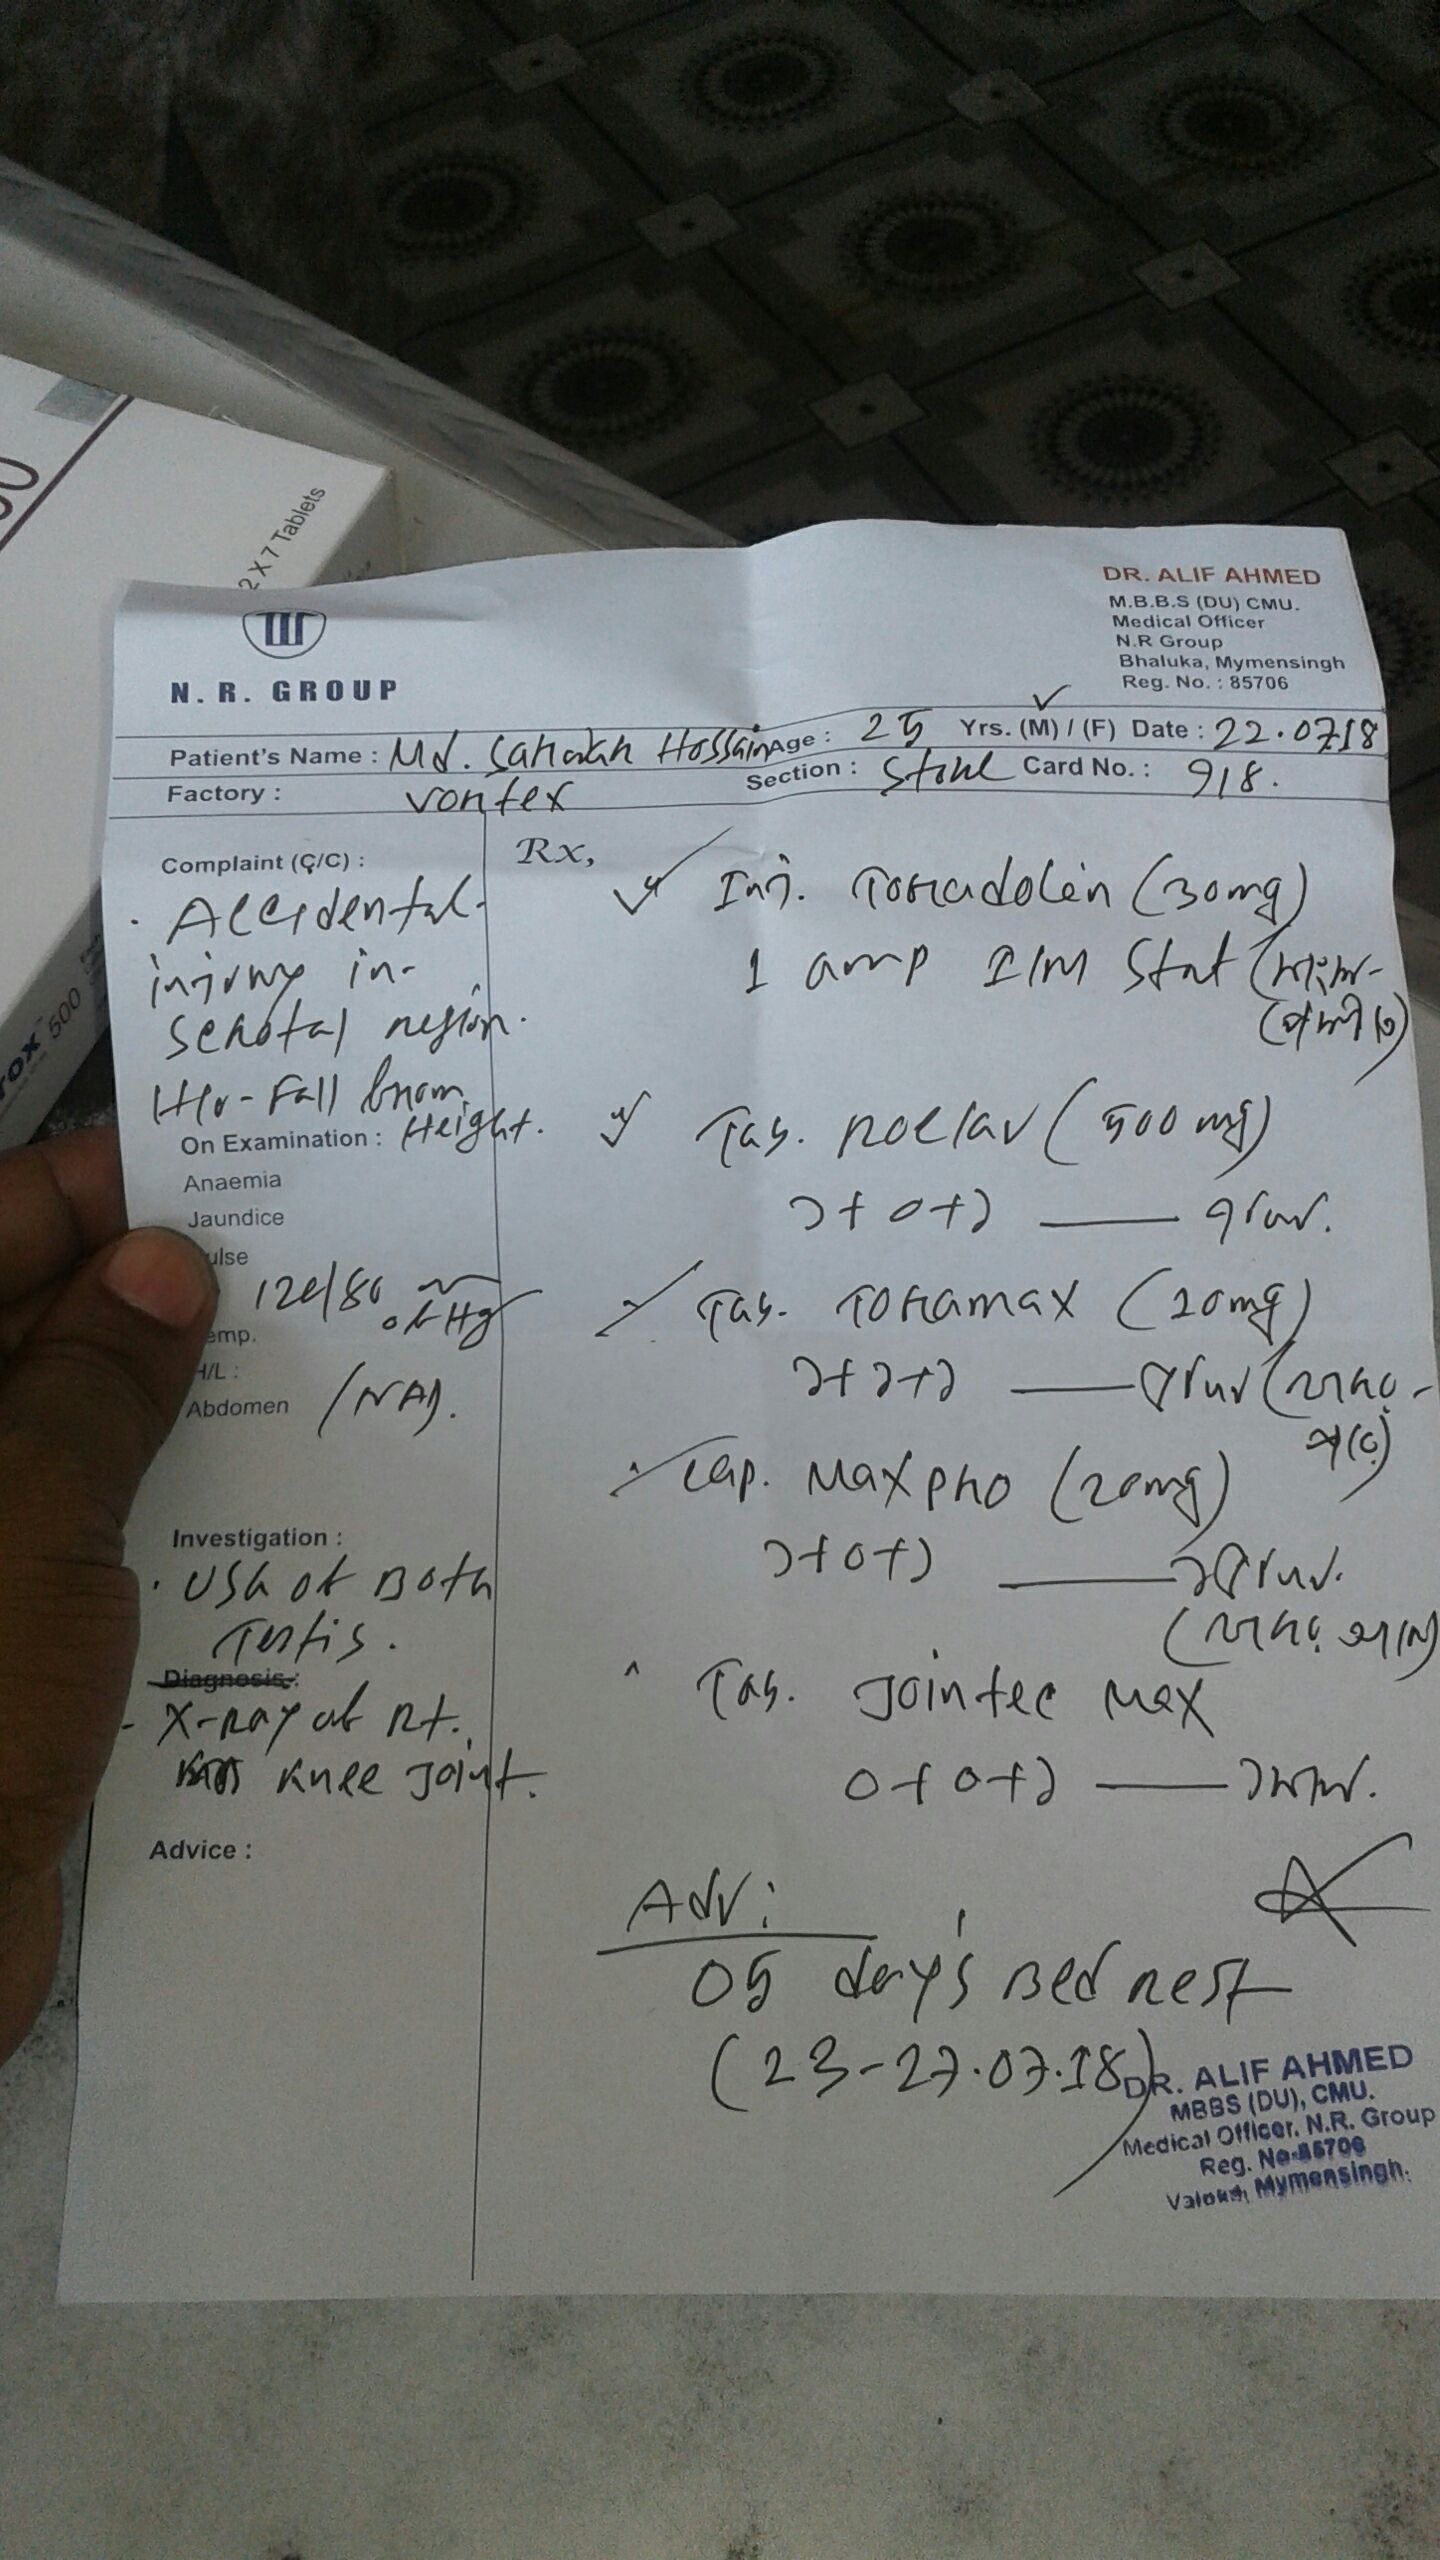 2 X 7 Tablets
500
N. R. GROUP
DR. ALIF AHMED
M.B.B.S (DU) CMU.
Medical Officer
N.R Group
Bhaluka, Mymensingh
Reg. No. : 85706
Patient's Name : Md. Hossain Age : 25 Yrs. (M) / (F) Date : 22.07.18
Factory : Vontex Section : Card No. : 918.
Complaint (C/C) :
Accidental
injury in
scrotal region.
H/o - Fall from
Height.
On Examination :
Anaemia
Jaundice
ulse
120/80 of Hg
emp.
H/L :
Abdomen (NAD).
Investigation :
USG of Both
Testis.
Diagnosis :
- X-ray of Rt.
Knee Joint.
Advice :
Rx,
Inj. Toradolin (30mg)
1 amp I/M Stat
Tab. Roclav (500 mg)
১+০+১ —
Tab. Toramax (10mg)
১+১+১ —
Cap. Maxpro (20mg)
১+০+১ —
Tab. Jointec Max
০+০+১ —
Adv:
05 day's Bed rest
(23-27.07.18)
DR. ALIF AHMED
MBBS (DU), CMU.
Medical Officer. N.R. Group
Reg. No-85706
Mymensingh.